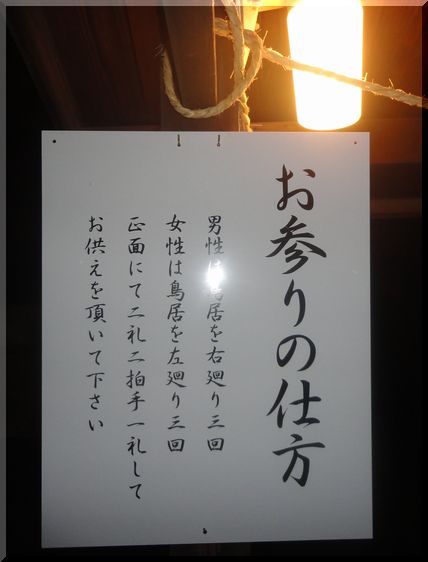 お参りの仕方
男性は鳥居を右廻り三回
女性は鳥居を左廻り三回
正面にて二礼二拍手一礼して
お供えを頂いて下さい